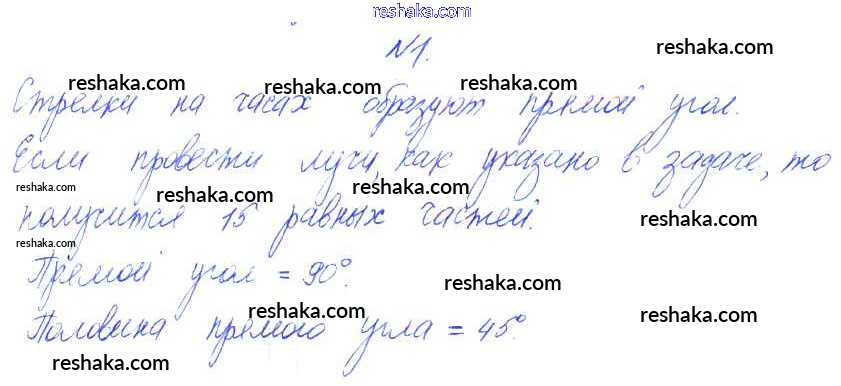 reshaka.com
№1.
reshaka.com
reshaka.com reshaka.com reshaka.com
Стрелки на часах образуют прямой угол.
Если провести лучи, как указано в задаче, то
reshaka.com reshaka.com reshaka.com
получится 15 равных частей.
reshaka.com reshaka.com
Прямой угол = 90°.
reshaka.com
reshaka.com reshaka.com
Половина прямого угла = 45°.
reshaka.com